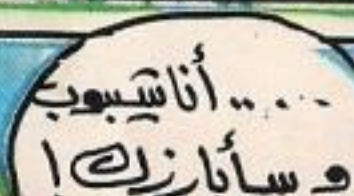 .... أنا شيبوب
و سأبارزك !